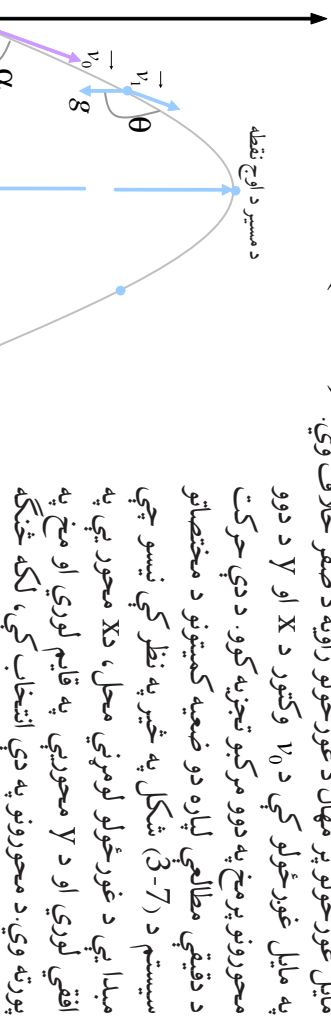 مایل غورځولو پر مهال د غورځولو زاویه د صفر خلاف وي.
په مایل غورځولو کې د v₀ وکتور د x او y د دوو
محورونو پر مخ په دوو مرکبو تجزیه کوو. د دې حرکت
د دقیقې مطالعې لپاره دو ضعیه کمیتونو د مختصاتو
سیستم د (3-7) شکل په څیر په نظر کې نیسو چې
مبدا یې د غورځولو لومړني محل، د x محور یې په
افقي لوري او د y محور یې په قایم لوري او مخ په
پورته وي. د محورونو په دې انتخاب کې، لکه څنګه
د مسیر د اوج نقطه
v₁
θ
g
v₀
α